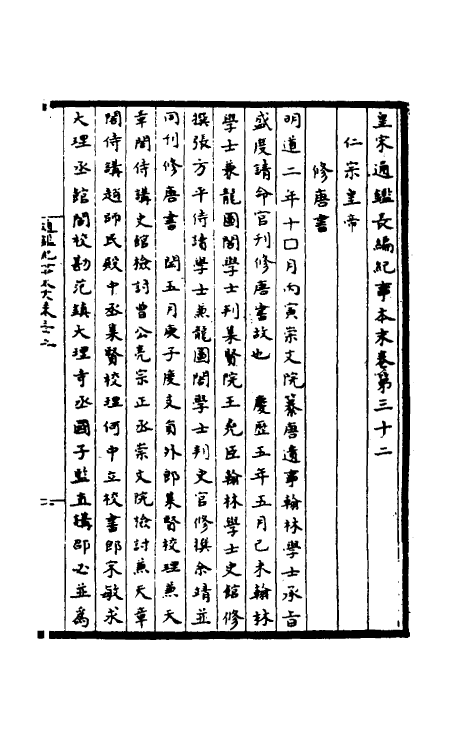 皇宋通鑑長編紀事本末卷第三十二
仁宗皇帝
修唐書
明道二年十□月丙寅崇文院纂唐遺事翰林學士承旨
盛度請命官刊修唐書故也　慶歷五年五月己未翰林
學士兼龍圖閣學士判集賢院王堯臣翰林學士史館修
撰張方平侍讀學士兼龍圖閣學士判史官修撰余靖並
同刊修唐書　閏五月庚子度支員外郎集賢校理兼天
章閣侍講史館檢討曾公亮宗正丞崇文院檢討兼天章
閣侍講趙師民殿中丞集賢校理何中立校書郎宋敏求
大理丞館閣校勘范鎮大理寺丞國子監直講邵必並為